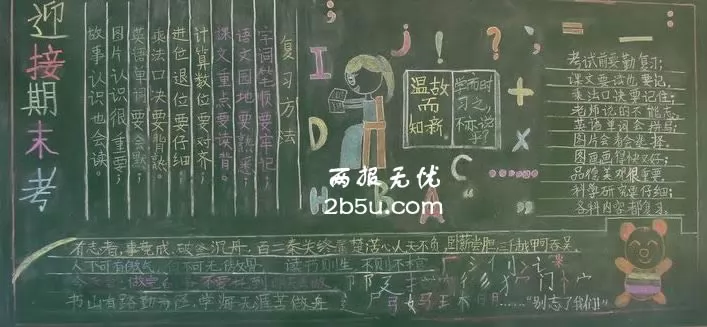 迎接期末考
复习方法
字词笔顺要牢记；
语文园地要熟悉；
课文重点要读背。
计算数位要对齐；
进位退位要仔细
乘法口决要背熟。
英语单词要会默；
图片认识很重要；
故事认识也会读。
I
D
H
j
B
A
C
!
?
；
+
×
=
温故而知新。
学而时习之，不亦说乎
考试前要勤复习；
课文要读也要记，
乘法口决要记住；
老师说的不能忘，
英语单词会拼写；
图片会看会选择。
图画画得快又好；
品德美观很重要
科学研究要仔细；
各科内容都复习。
两报无忧
2b5u.com
有志者，事竟成，破釜沉舟，百二秦关终属楚 苦心人天不负，卧薪尝胆三千越甲可吞吴
人不可有傲 无傲骨 读书则
书山有路勤为径，学海无涯苦做舟
马女王木日月……“别忘了我们！”